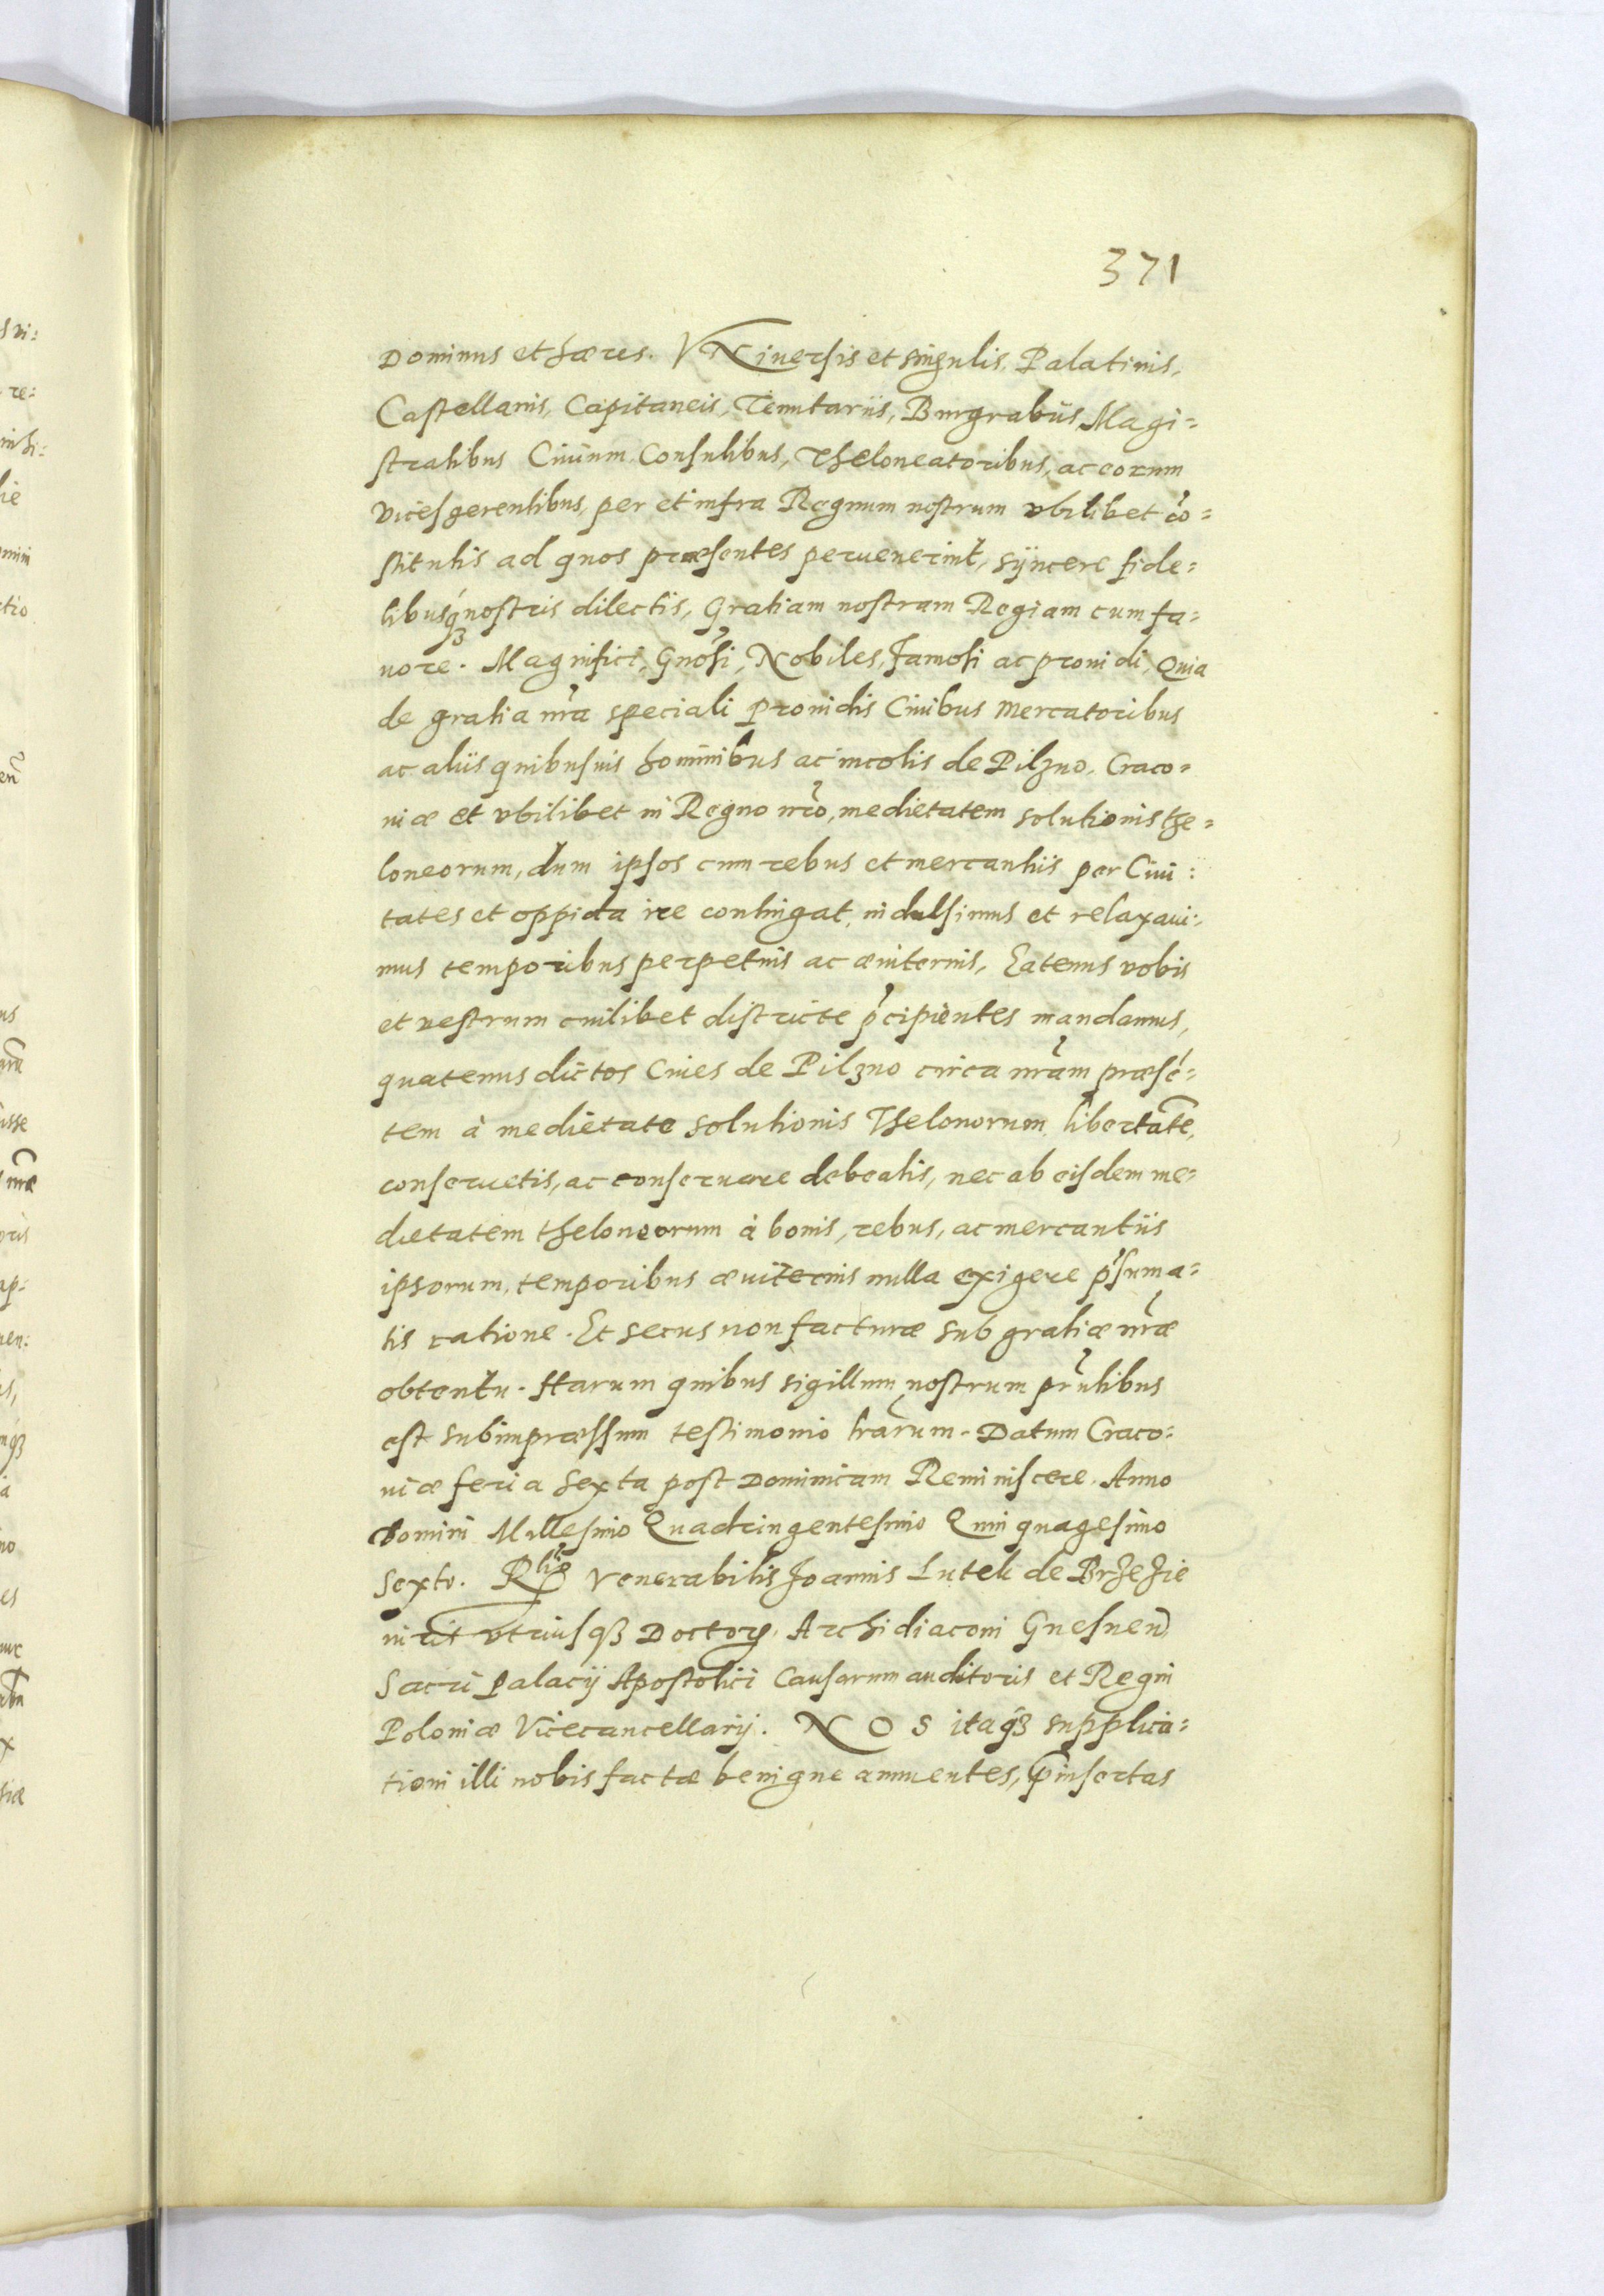 371
Dominus et hæres. VNiuersis et singulis Palatinis,
Castellanis, Capitaneis, Tenutariis, Burgrabiis, Magi=
stratibus Ciuium Consulibus, Theloneatoribus, ac eorum
vicesgerentibus, per et infra Regnum nostrum vbilibet cõ=
stitutis ad quos præsentes peruenerint, syncere fide=
libusq́ꝫ nostris dilectis, Gratiam nostram Regiam cum fa=
uore. Magnifici, Gnõsi, Nobiles, famosi ac prouidi, Quia
de gratia nr̃a speciali prouidis Ciuibus Mercatoribus
ac aliis quibusuis hominibus ac incolis de Pilzno, Craco=
uiæ et vbilibet in Regno nr̃o, medietatem solutionis the=
loneorum, dum ipsos cum rebus et mercantiis per Ciui:
tates et oppida ire contingat, indulsimus et relaxaui:
mus temporibus perpetuis ac æuiternis, Eatenus vobis
et vestrum cuilibet districte p̃cipientes mandamus,
quatenus dictos Ciues de Pilzno circa nr̃am præsẽ=
tem à medietate solutionis Thelonorum libertatẽ,
conseruetis, ac conseruare debeatis, nec ab eisdem me=
dietatem theloneorum à bonis, rebus, ac mercantiis
ipsorum, temporibus æuiternis nulla exigere p̃suma=
tis ratione. Et secus non facturæ sub gratiæ nr̃æ
obtentu. Harum quibus sigillum nostrum pr̃ntibus
est subimpræssum testimonio lrãrum. Datum Craco:
uiæ feria sexta post Dominicam Reminiscere. Anno
Domini Millesimo Quadringentesimo Quinquagesimo
Sexto. Rltio Venerabilis Joannis Lutek de Brzezie
iuris vtriusqꝫ Doctorꝭ. Archidiaconi Gnesnen̄
Sacri Palacij Apostolici Causarum auditoris et Regni
Poloniæ Vicecancellarij. NOS itaq́ꝫ supplica=
tioni illi nobis factæ benigne annuentes, p̃insertas